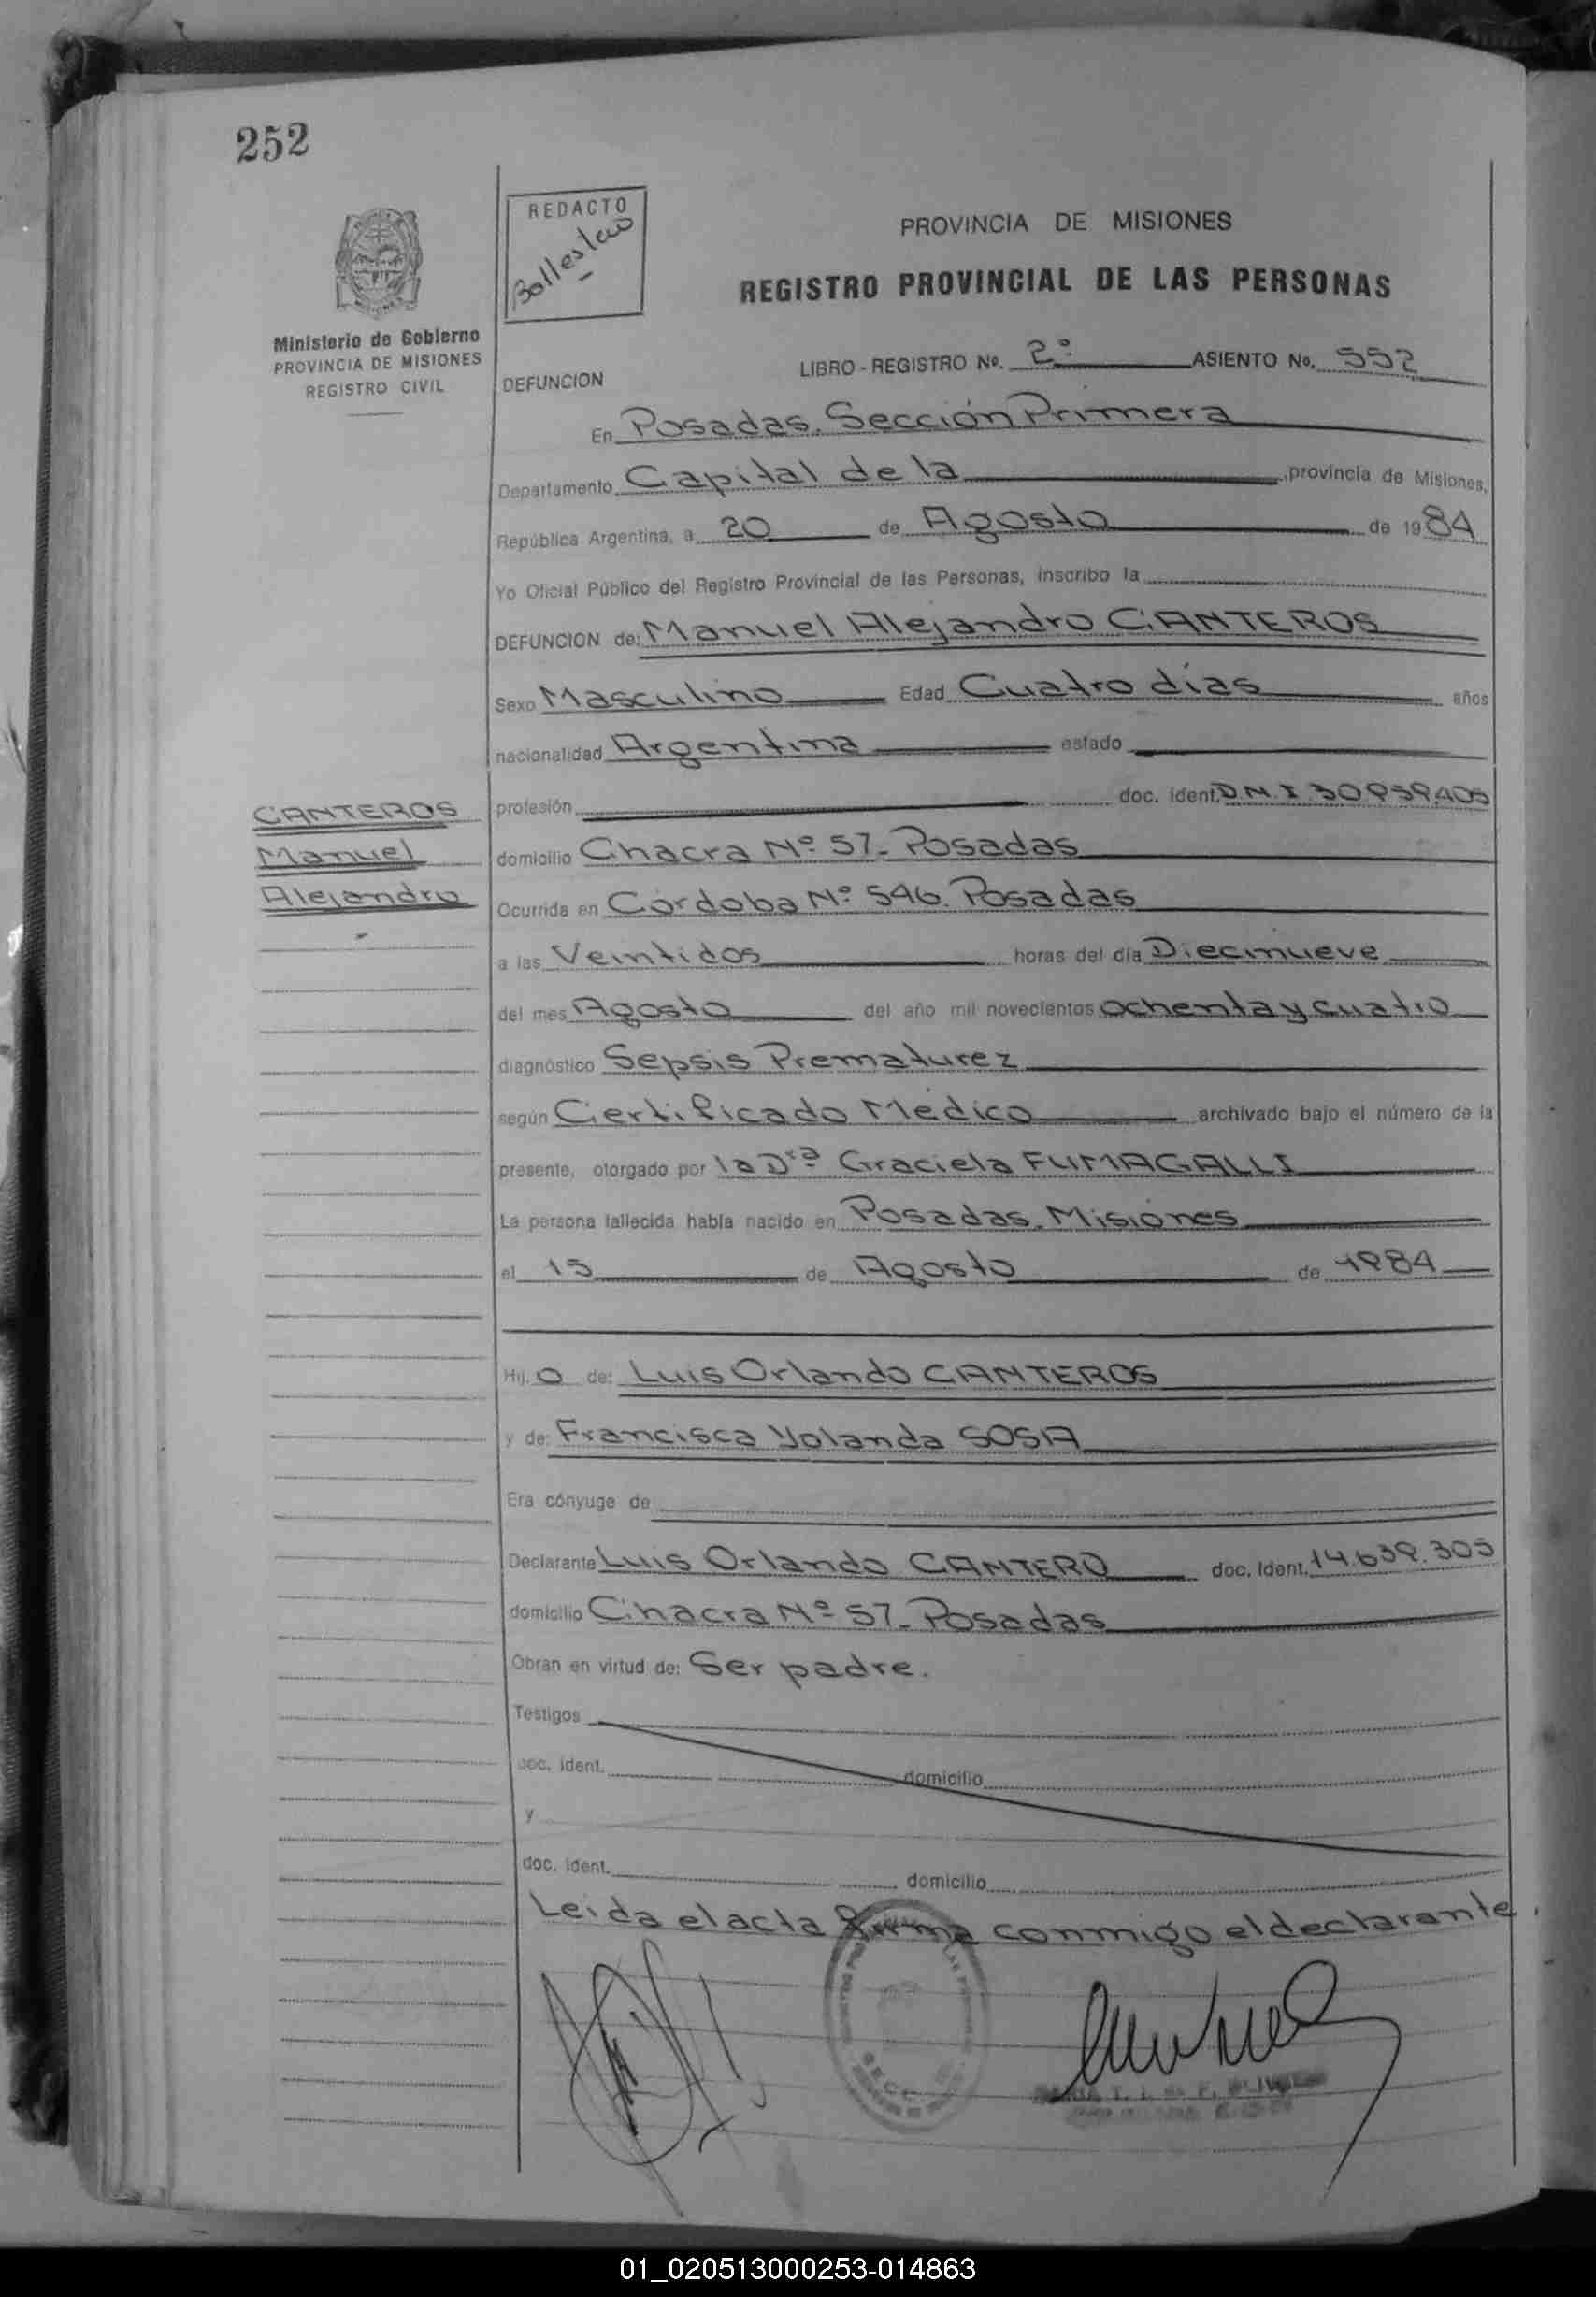 252
REDACTO
PROVINCIA DE MISIONES
REGISTRO PROVINCIAL DE LAS PERSONAS
Ministerio de Gobierno
PROVINCIA DE MISIONES
REGISTRO CIVIL
LIBRO - REGISTRO Nº. 2º ASIENTO No. 552
DEFUNCION
En Posadas. Sección Primera
Departamento Capital de la provincia de Misiones,
República Argentina, a 20 de Agosto de 1984
Yo Oficial Público del Registro Provincial de las Personas, inscribo la
DEFUNCION de: Manuel Alejandro CANTEROS
Sexo Masculino Edad Cuatro días años
nacionalidad Argentina estado
CANTEROS
Manuel
Alejandro
profesión doc. ident. D.N.I. 30.959.405
domicilio Chacra Nº 57- Posadas
Ocurrida en Córdoba Nº 546. Posadas
a las Veintidos horas del día Diecinueve
del mes Agosto del año mil novecientos ochenta y cuatro
diagnóstico Sepsis Prematurez
según Certificado Médico archivado bajo el número de la
presente, otorgado por la Drª Graciela FUMAGALLI
La persona fallecida había nacido en Posadas. Misiones
el 15 de Agosto de 1984
Hij o de: Luis Orlando CANTEROS
y de: Francisca Yolanda SOSA
Era cónyuge de
Declarante Luis Orlando CANTERO doc. Ident. 14.639.305
domicilio Chacra Nº 57- Posadas
Obran en virtud de: Ser padre.
Testigos
doc. ident. domicilio
y
doc. ident. domicilio
Leida el acta firma conmigo el declarante.
01_020513000253-014863